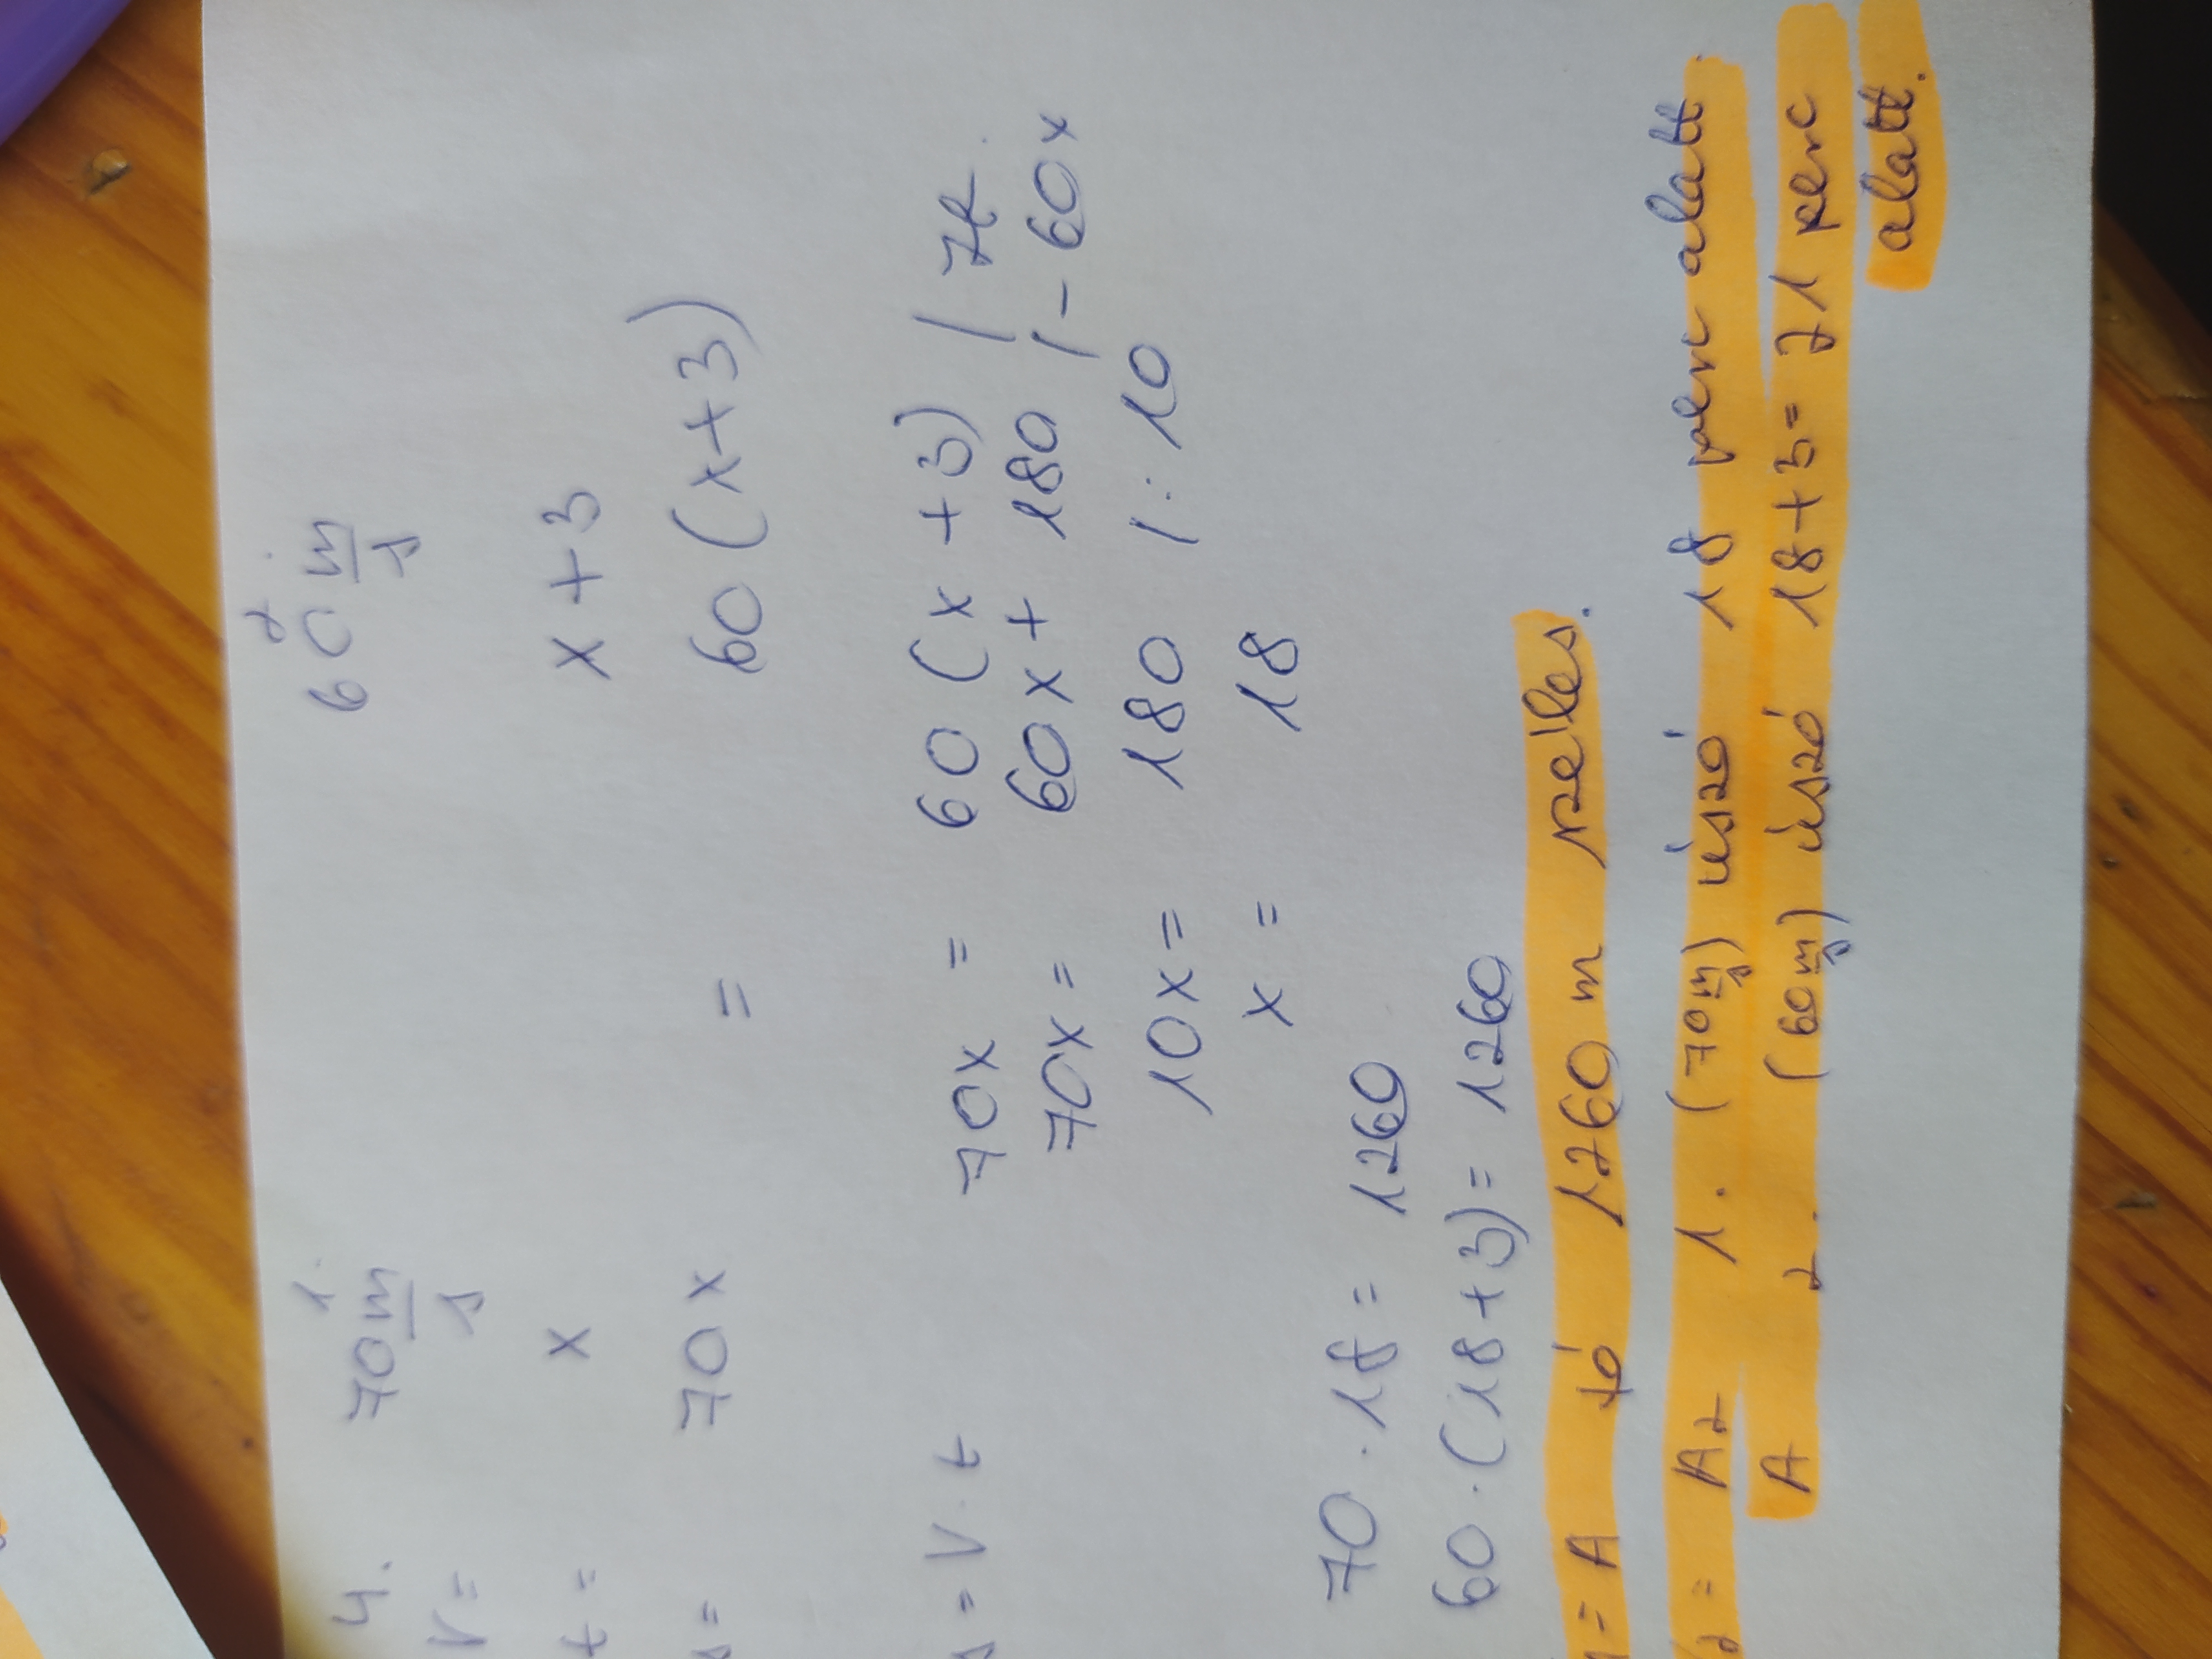 4. 1. 2.
v= 70 m/s 60 m/s
t= x x+3
s= 70x = 60(x+3)
s = v · t 70x = 60(x+3) / zf.
70x = 60x + 180 / - 60x
10x = 180 / : 10
x = 18
70 · 18 = 1260
60 · (18+3) = 1260
= A tó 1260 m széles.
= Az 1. (70 m/s) úszó 18 perc alatt.
A 2. (60 m/s) úszó 18+3= 21 perc
alatt.